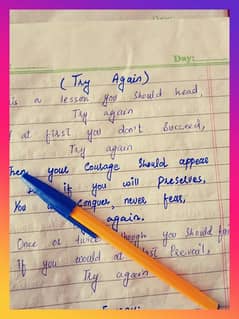 Day:
(Try Again)
is a lesson you should head,
Try again
at first you don't succeed,
Try again
Then your courage should appear
if you will preserves,
You conquer, never fear,
again.
Once or twice though you should fa
If you would at last Prevail,
Try again